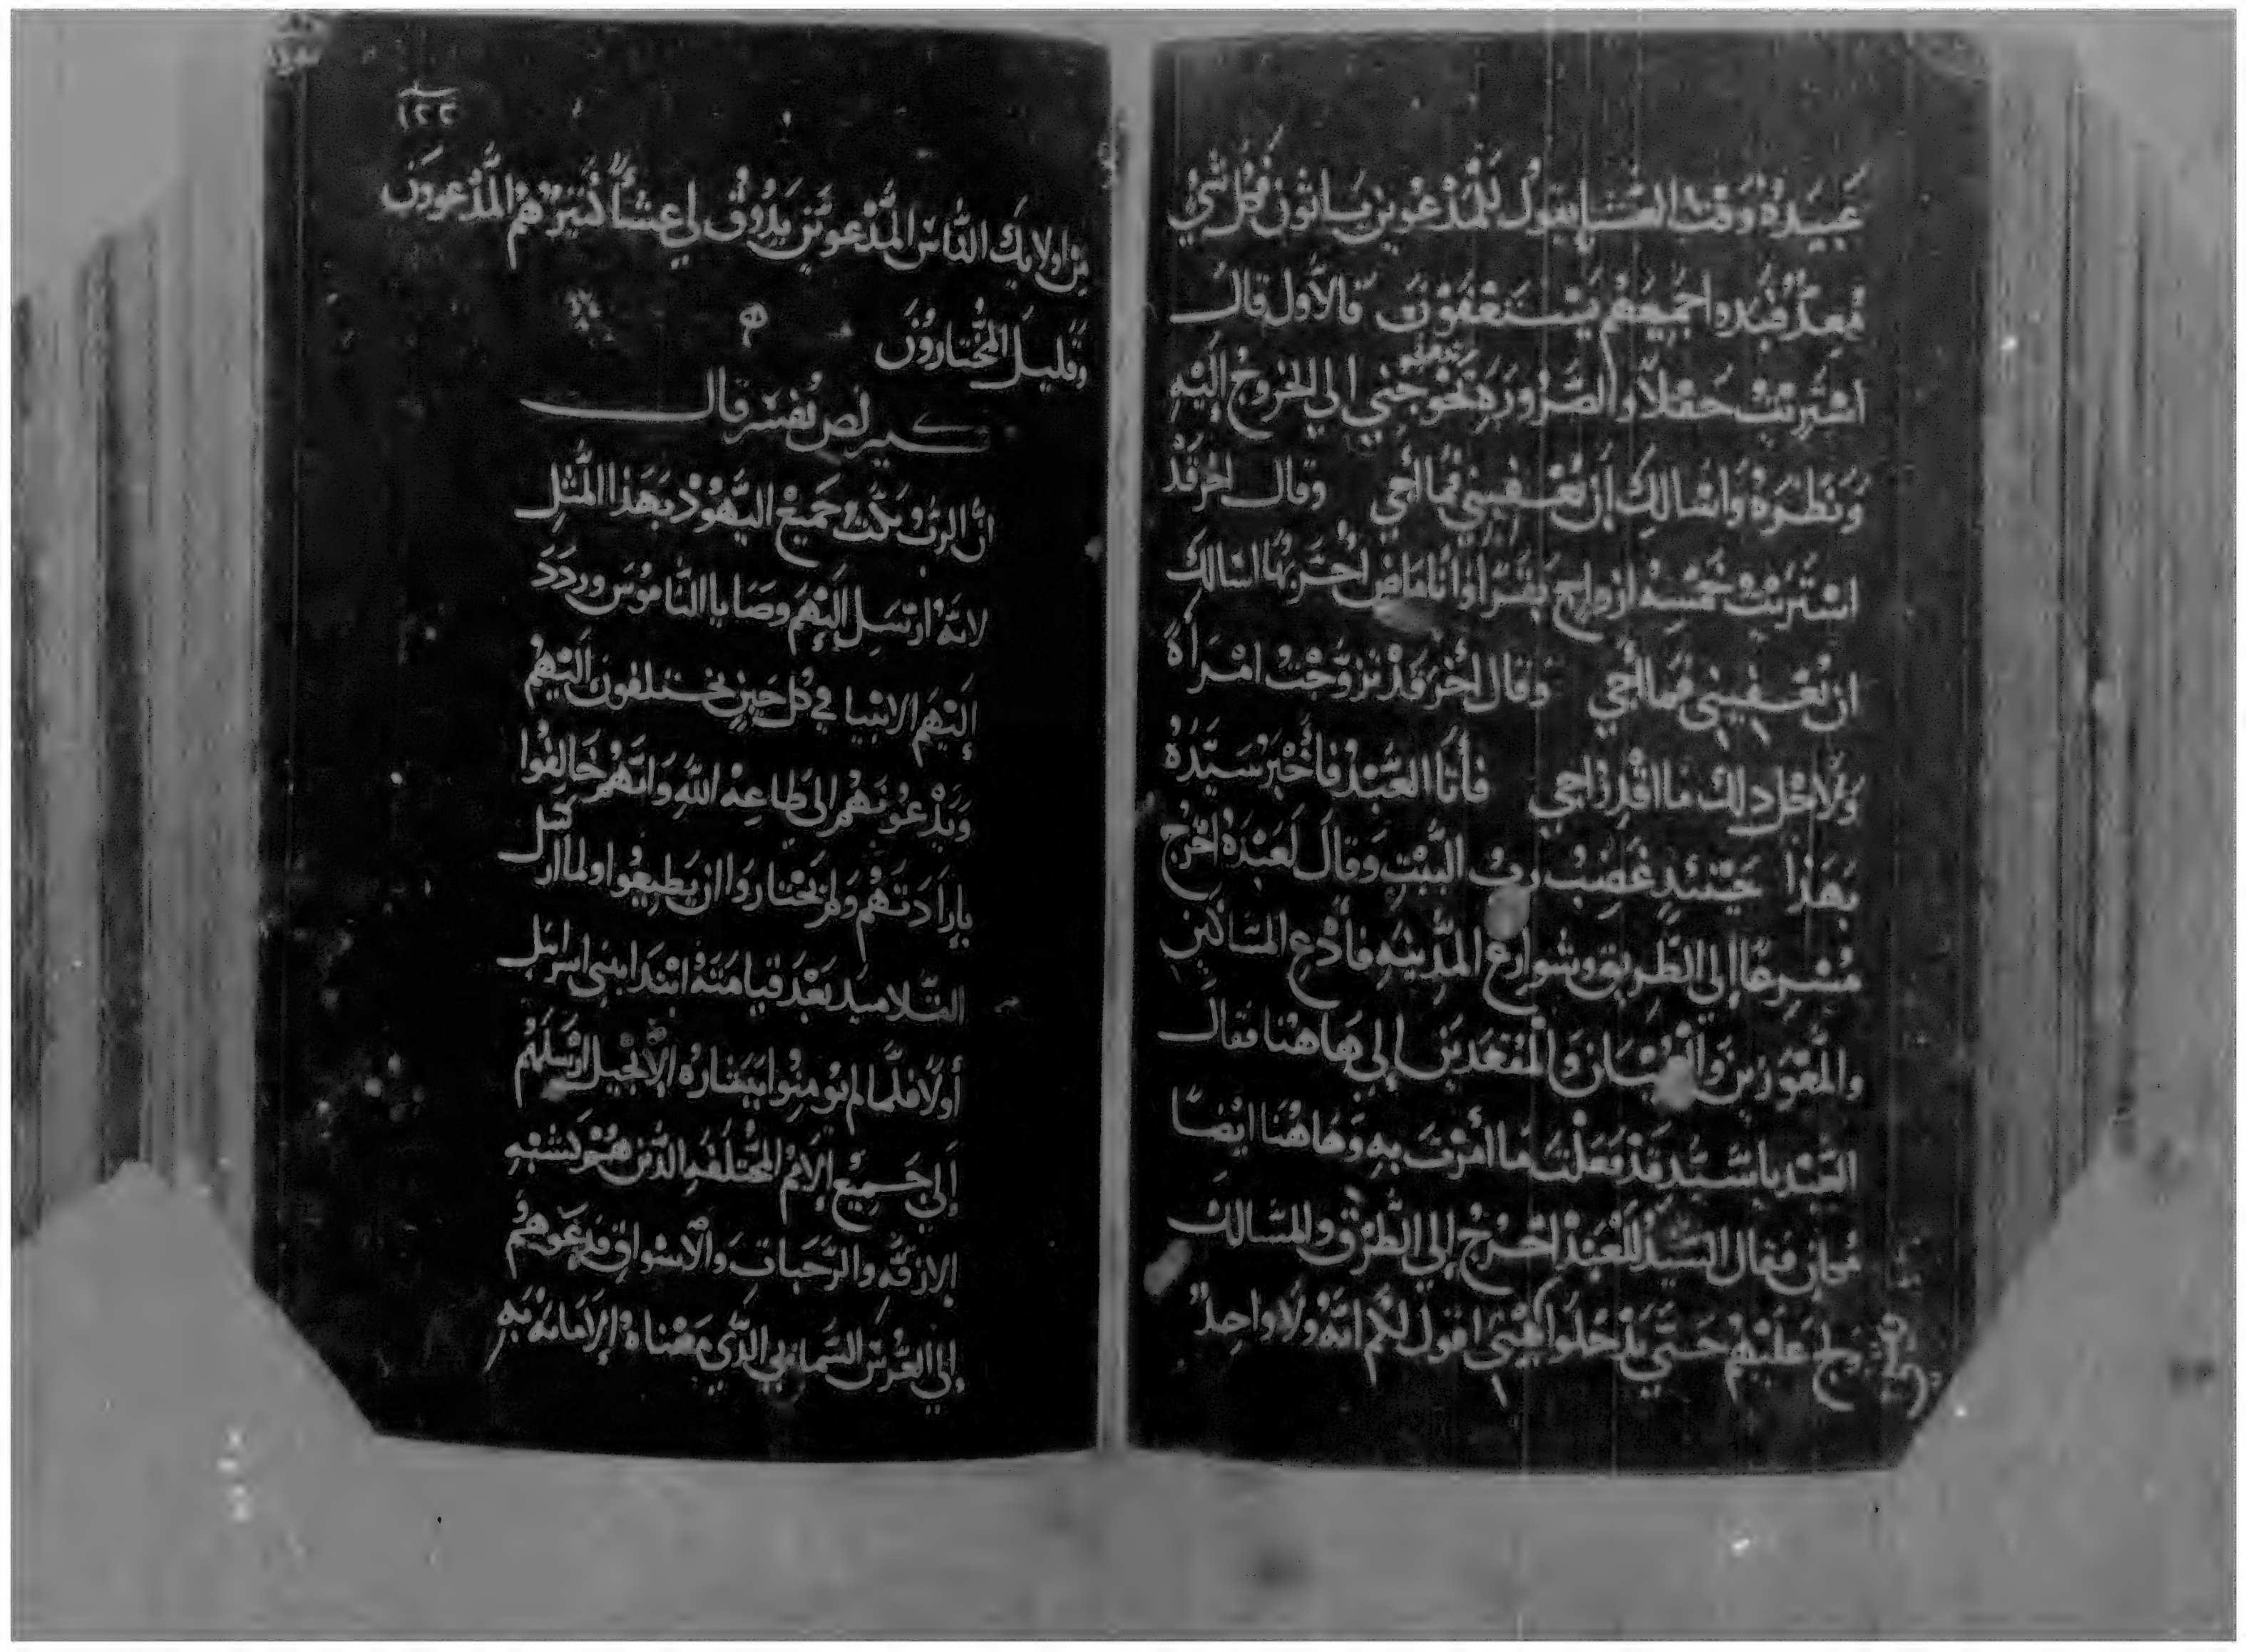 عَبيدَهُ وَقت العَشا يقول للمَدْعُوين يَاتون فَكل شَيْ
مُعد فبدو اجميعهم يَستَعْفون فالاول قال
اشتَريْت حَقلاً والضَرورَة تحوجني الي الخروج اليْهِ
وَنَطرَهُ وَاسَالكَ ان تعْفيني فما أجي وقال اخر قَدْ
اشتَرَيْتْ خمْسِه ازواج بَقَرًا وَأنا ماض اجَرّبهَا اسَالكَ
ان تعْفيني فما أجي وقال أخر قَدْ تزوّجْت امْرَأة
وَلاجْل دلك مَا اقْدِرْ اجي فأتَا العَبْد فأخْبرَ سَيّدَهُ
بهَذا حيْنَيدٍ غَضِبُ ربُ البَيْت وَقالَ لعَبْدهُ اخْرُج
مُسْرِعًا إلي الطريق وشوارع المدِينه فأدْع المسَاكين
والمعْوَزين وَالعُميَان وَالمقعَدين إلي هَا هنا فقالَ
العَبْد يا سَيّد قَدْ فَعَلْتَ مَا أمَرْتَ بهِ وَهَا هُنَا ايْضًا
مُكان فقال السَيّدُ للعَبْد اخْرُجْ إلي الطُرق والمسَالك
ولج عَليْهم حَتّي يَدْخلوا بَيْتي اقول لكم انهُ ولا واحِدٌ
١٢٢
مِن اولايكَ الناسَ المَدْعوينَ يَدُوق لي عشَاً كثيرَ هُمْ المَدْعوونَ
وَقليل المختارونَ
تفسير قال
انَّ الربُ وبَكتْ جَميعْ اليَهُودْ بهَذا المَثلِ
لانهُ ارْسَل إليْهم وصَايا النامُوسَ وردَدَ
إليْهم الانبيا في كل حينٍ يختلفون اليْهمْ
وَيَدْعُونَهُم الى طاعِهْ اللهِ وَانهُم خالفُوا
بإرادَتهمْ وَلم يَخْتاروا ان يَطيعُوا ولما ارسَل
التلاميدَ بَعْدَ قيامَتهُ ابْتدَا ببني اسرايل
أولاً فلما لم يُومِنُوا ببَشارهْ الإنجيل ارْسَلهُم
إلي جَميْع الامَمْ المختَلفهِ الدَين هُمْ كشبْهِ
الازقه والرَحَبات وَالاسْواقِ فدعَوهمْ
إلي العُرسَ السَماي الدَي مَعْناهُ الامانهْ بهِ